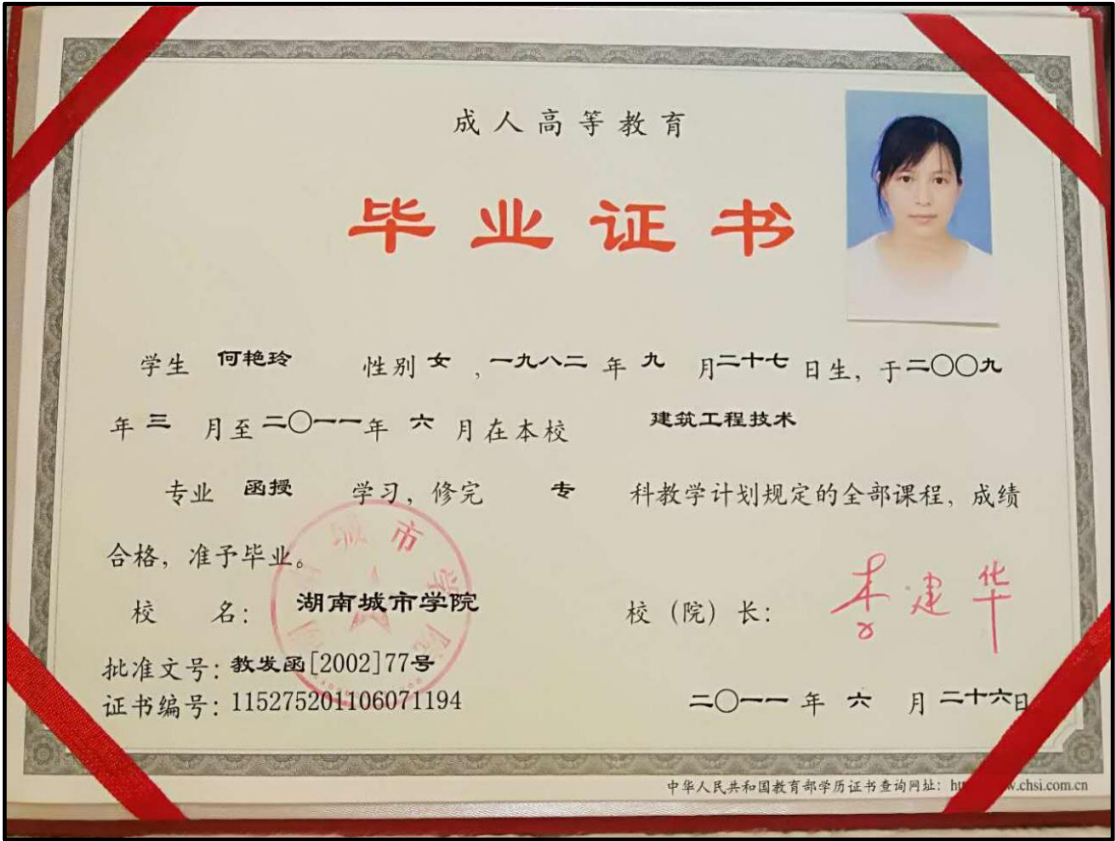 成人高等教育
毕业证书
学生 何艳玲 性别 女 , 一九八二 年 九 月二十七 日生, 于二〇〇九
年 三 月至 二〇一一年 六 月在本校 建筑工程技术
专业 函授 学习, 修完 专 科教学计划规定的全部课程, 成绩
合格, 准予毕业。
校 名: 湖南城市学院 校 (院) 长: 李建华
批准文号: 教发函[2002]77号
证书编号: 115275201106071194 二〇一一 年 六 月 二十六日
中华人民共和国教育部学历证书查询网址: h w.chsi.com.cn